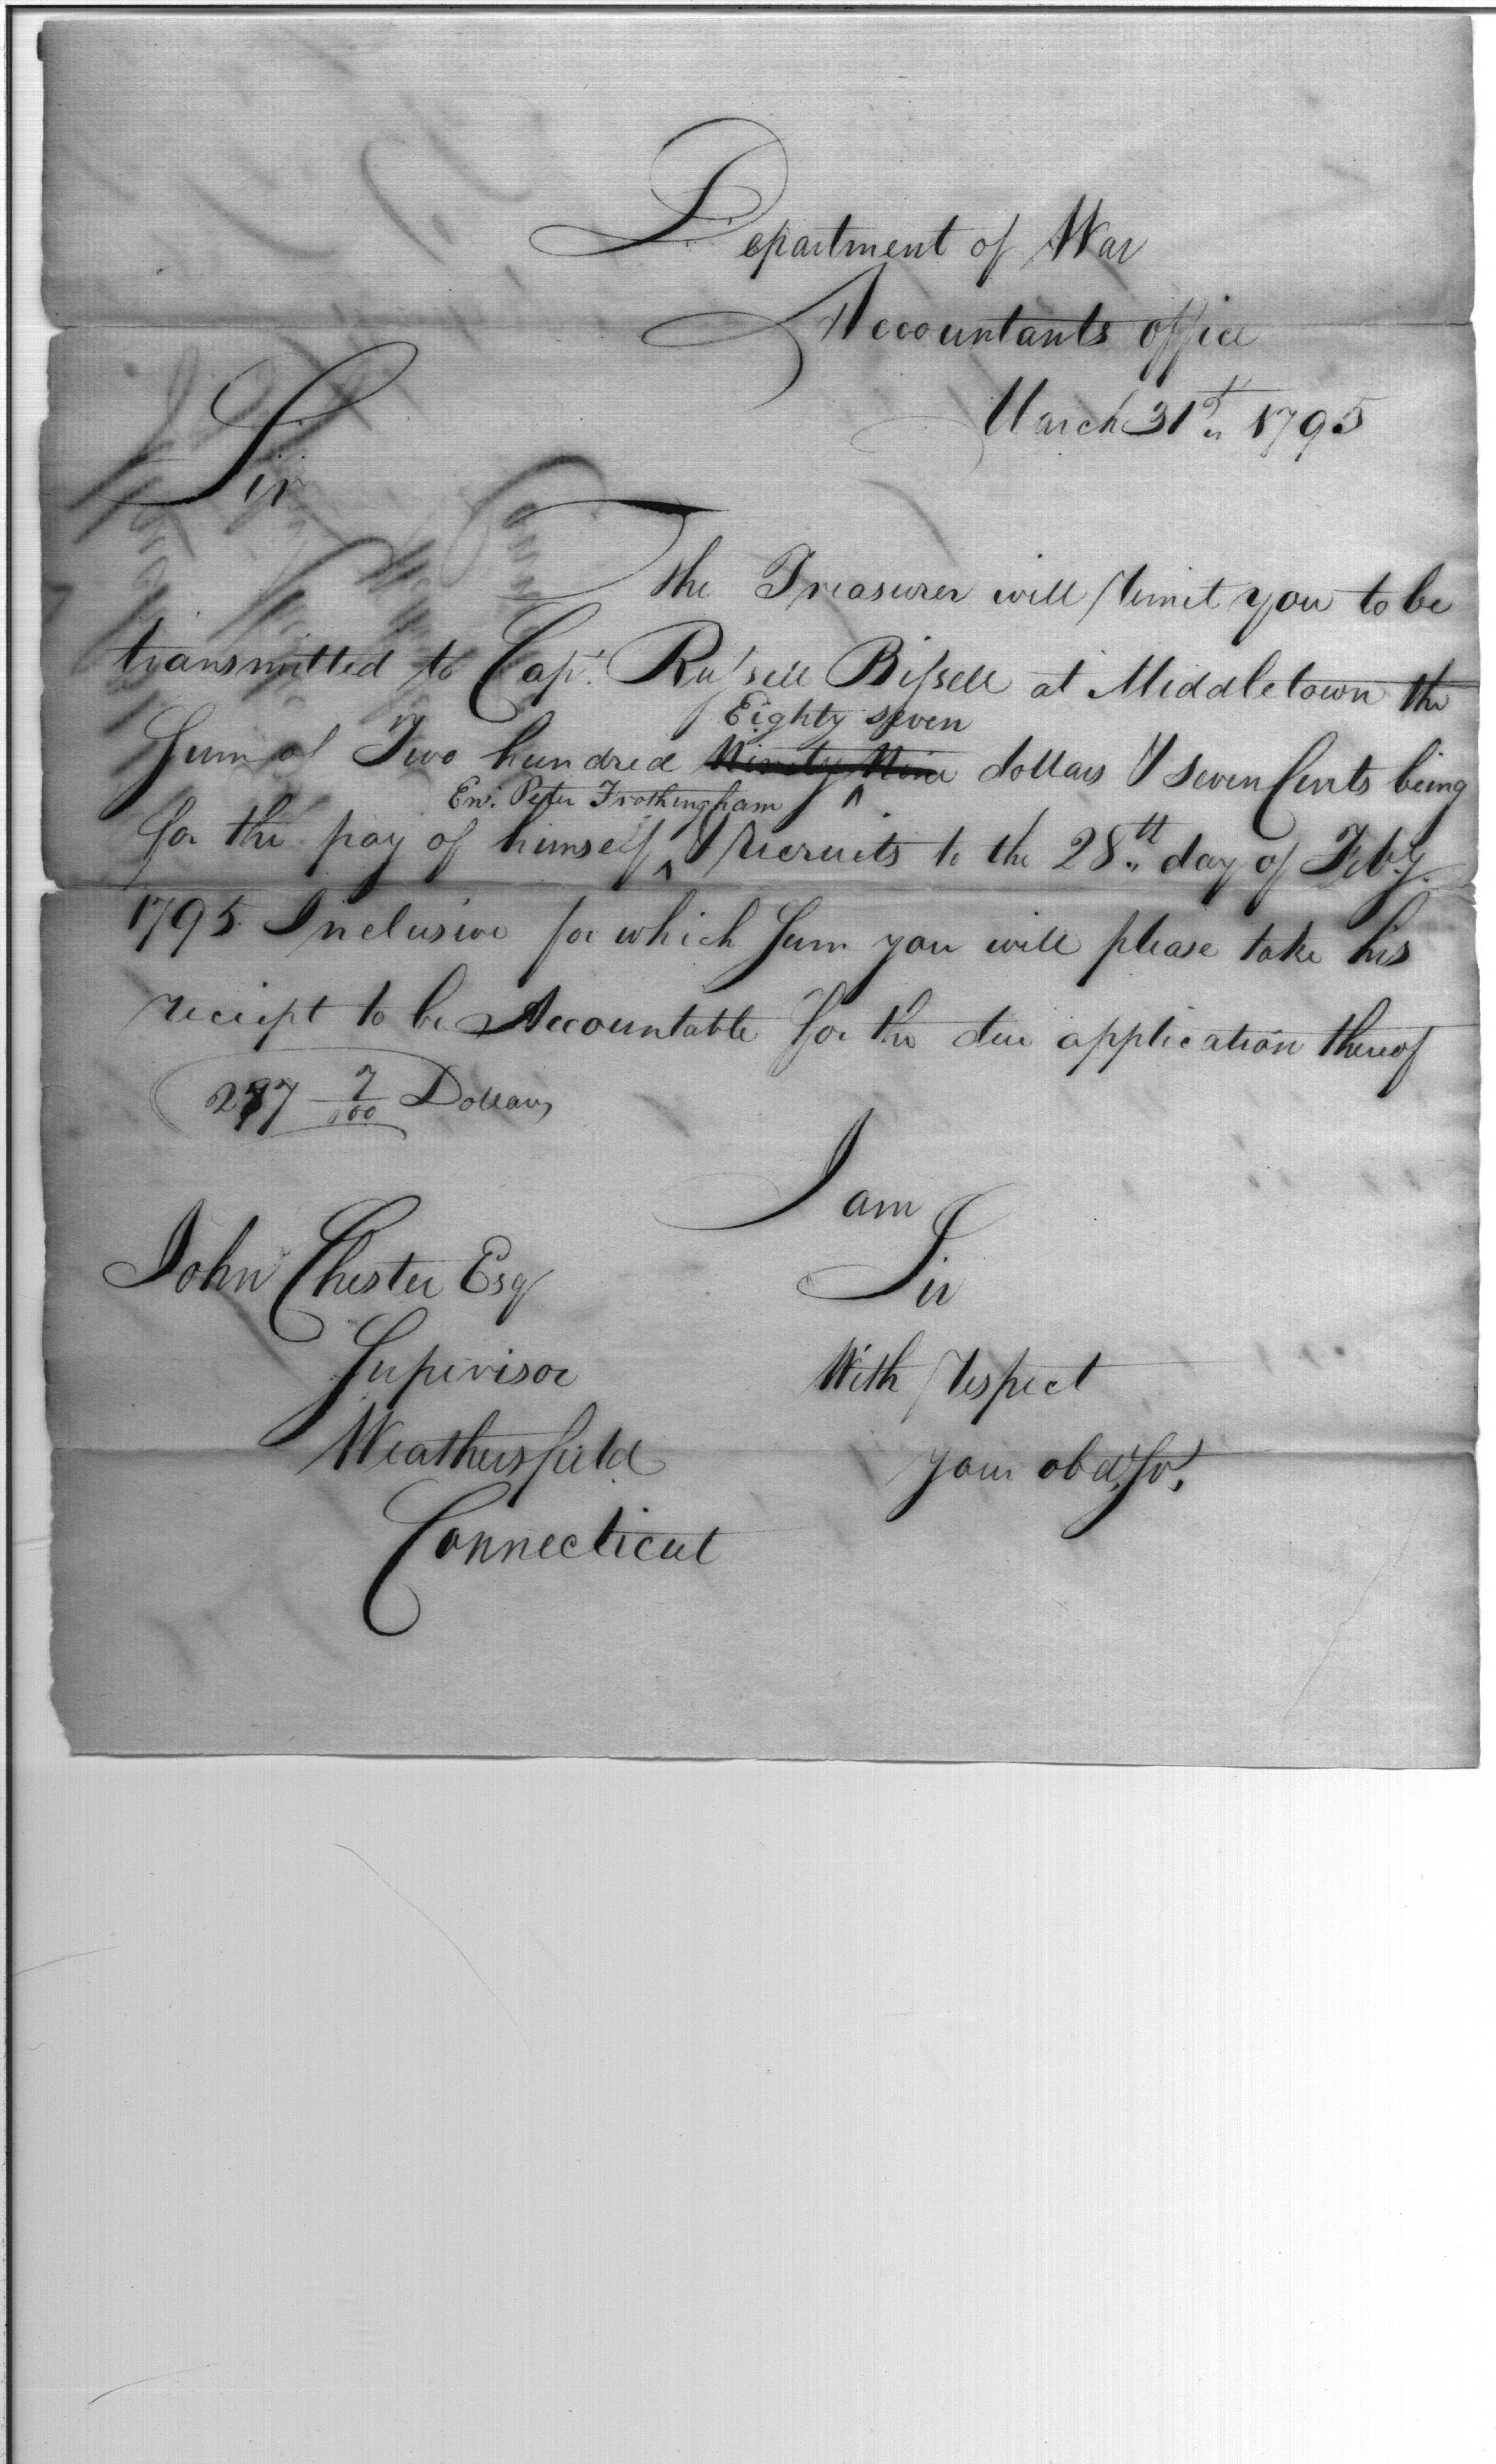 Department of War
Accountants office
March 31st 1795
Sir
The Treasurer will remit you to be
transmitted to Capt. Russell Bissell at Middletown the
Eighty seven
Sum of Two hundred Ninety Nine dollars & seven Cents being
Ens. Peter Frothingham
for the pay of himself ^ & recruits to the 28th day of Feby.
1795 Inclusive for which Sum you will please take his
reciept to be Accountable for the due application thereof
287 7/100 Dollars
I am
Sir
John Chester Esq
Supervisor
Weathersfield
Connecticut
With respect
your obd. Sv.